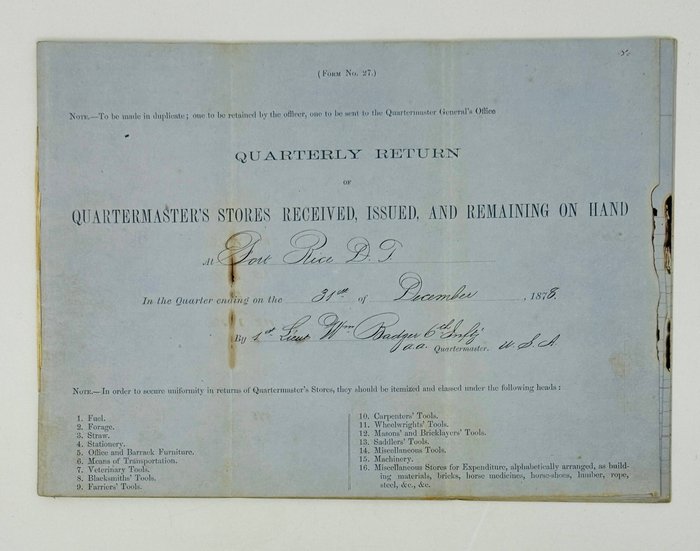 (Form No. 27.)
Note.—To be made in duplicate; one to be retained by the officer, one to be sent to the Quartermaster General's Office
QUARTERLY RETURN
OF
QUARTERMASTER'S STORES RECEIVED, ISSUED, AND REMAINING ON HAND
At Fort Rice D. T
In the Quarter ending on the 31st of December, 1878.
By 1st Lieut Wm Badger 6th Infty
a.a. Quartermaster. U. S. A
Note.—In order to secure uniformity in returns of Quartermaster's Stores, they should be itemized and classed under the following heads:
1. Fuel.
2. Forage.
3. Straw.
4. Stationery.
5. Office and Barrack Furniture.
6. Means of Transportation.
7. Veterinary Tools.
8. Blacksmiths' Tools.
9. Farriers' Tools.
10. Carpenters' Tools.
11. Wheelwrights' Tools.
12. Masons' and Bricklayers' Tools.
13. Saddlers' Tools.
14. Miscellaneous Tools.
15. Machinery.
16. Miscellaneous Stores for Expenditure, alphabetically arranged, as build-
ing materials, bricks, horse medicines, horse-shoes, lumber, rope,
steel, &c., &c.